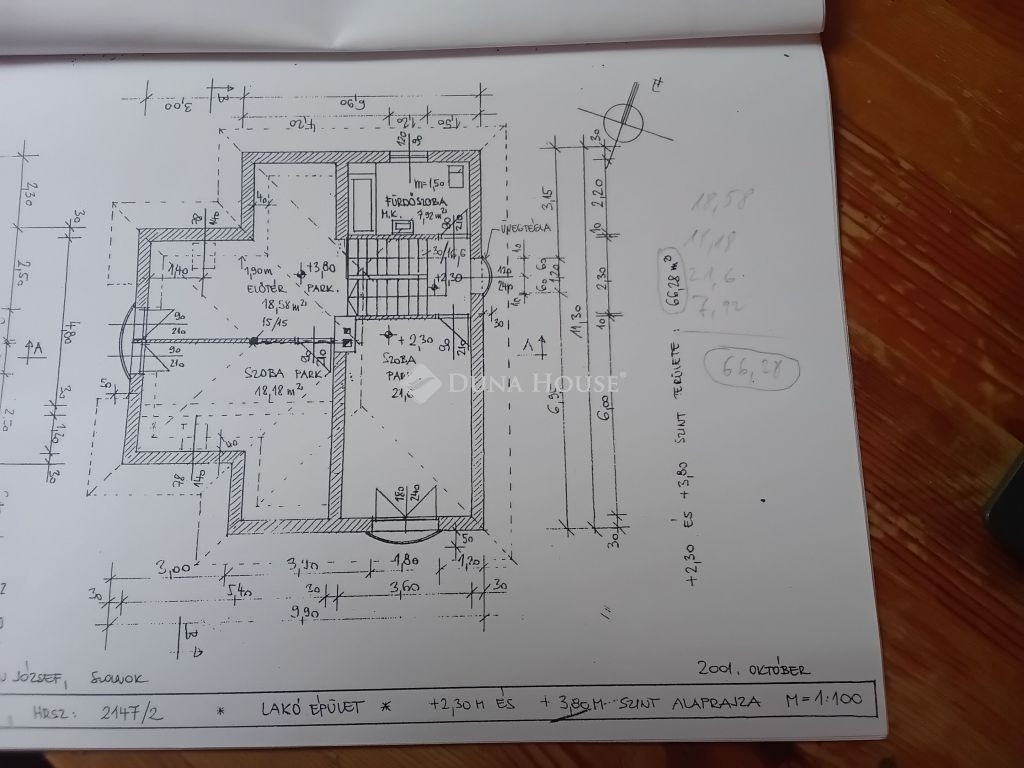 3,00
6,90
4,20
1,20
1,50
120
90
m=1,50
FÜRDŐSZOBA
M.K. 7,92 m²
ÜVEGTÉGLA
1,90m
+3,80
ELŐTÉR PARK.
18,58 m²
15/15
+2,30
+2,30
SZOBA
SZOBA PARK.
18,18 m²
DUNA HOUSE®
A
A
90
210
90
210
78
140
140
78
140
180
240
120
240
2,30
2,50
4,80
30
3,15
1,20
11,30
2,10
2,30
6,00
30
18,58
18,18
21,6
7,92
66,28
+2,30 ÉS +3,80 SZINT TERÜLETE: 66,28 m²
50
3,00
1,80
1,20
30
5,40
30
3,60
30
9,90
JÓZSEF, SZOLNOK
2001. OKTÓBER
HRSZ: 2147/2 * LAKÓ ÉPÜLET * +2,30 M ÉS + 3,80 M SZINT ALAPRAJZA M=1:100